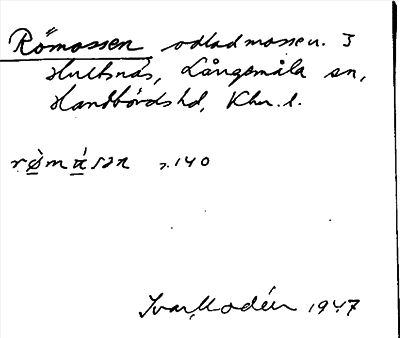 Römossen, odlad mosse u. 3
Hultsnäs, Långemåla sn,
Handbörds hd, Klm. l.
rø̀másən s. 140
Ivar Modéer 1947